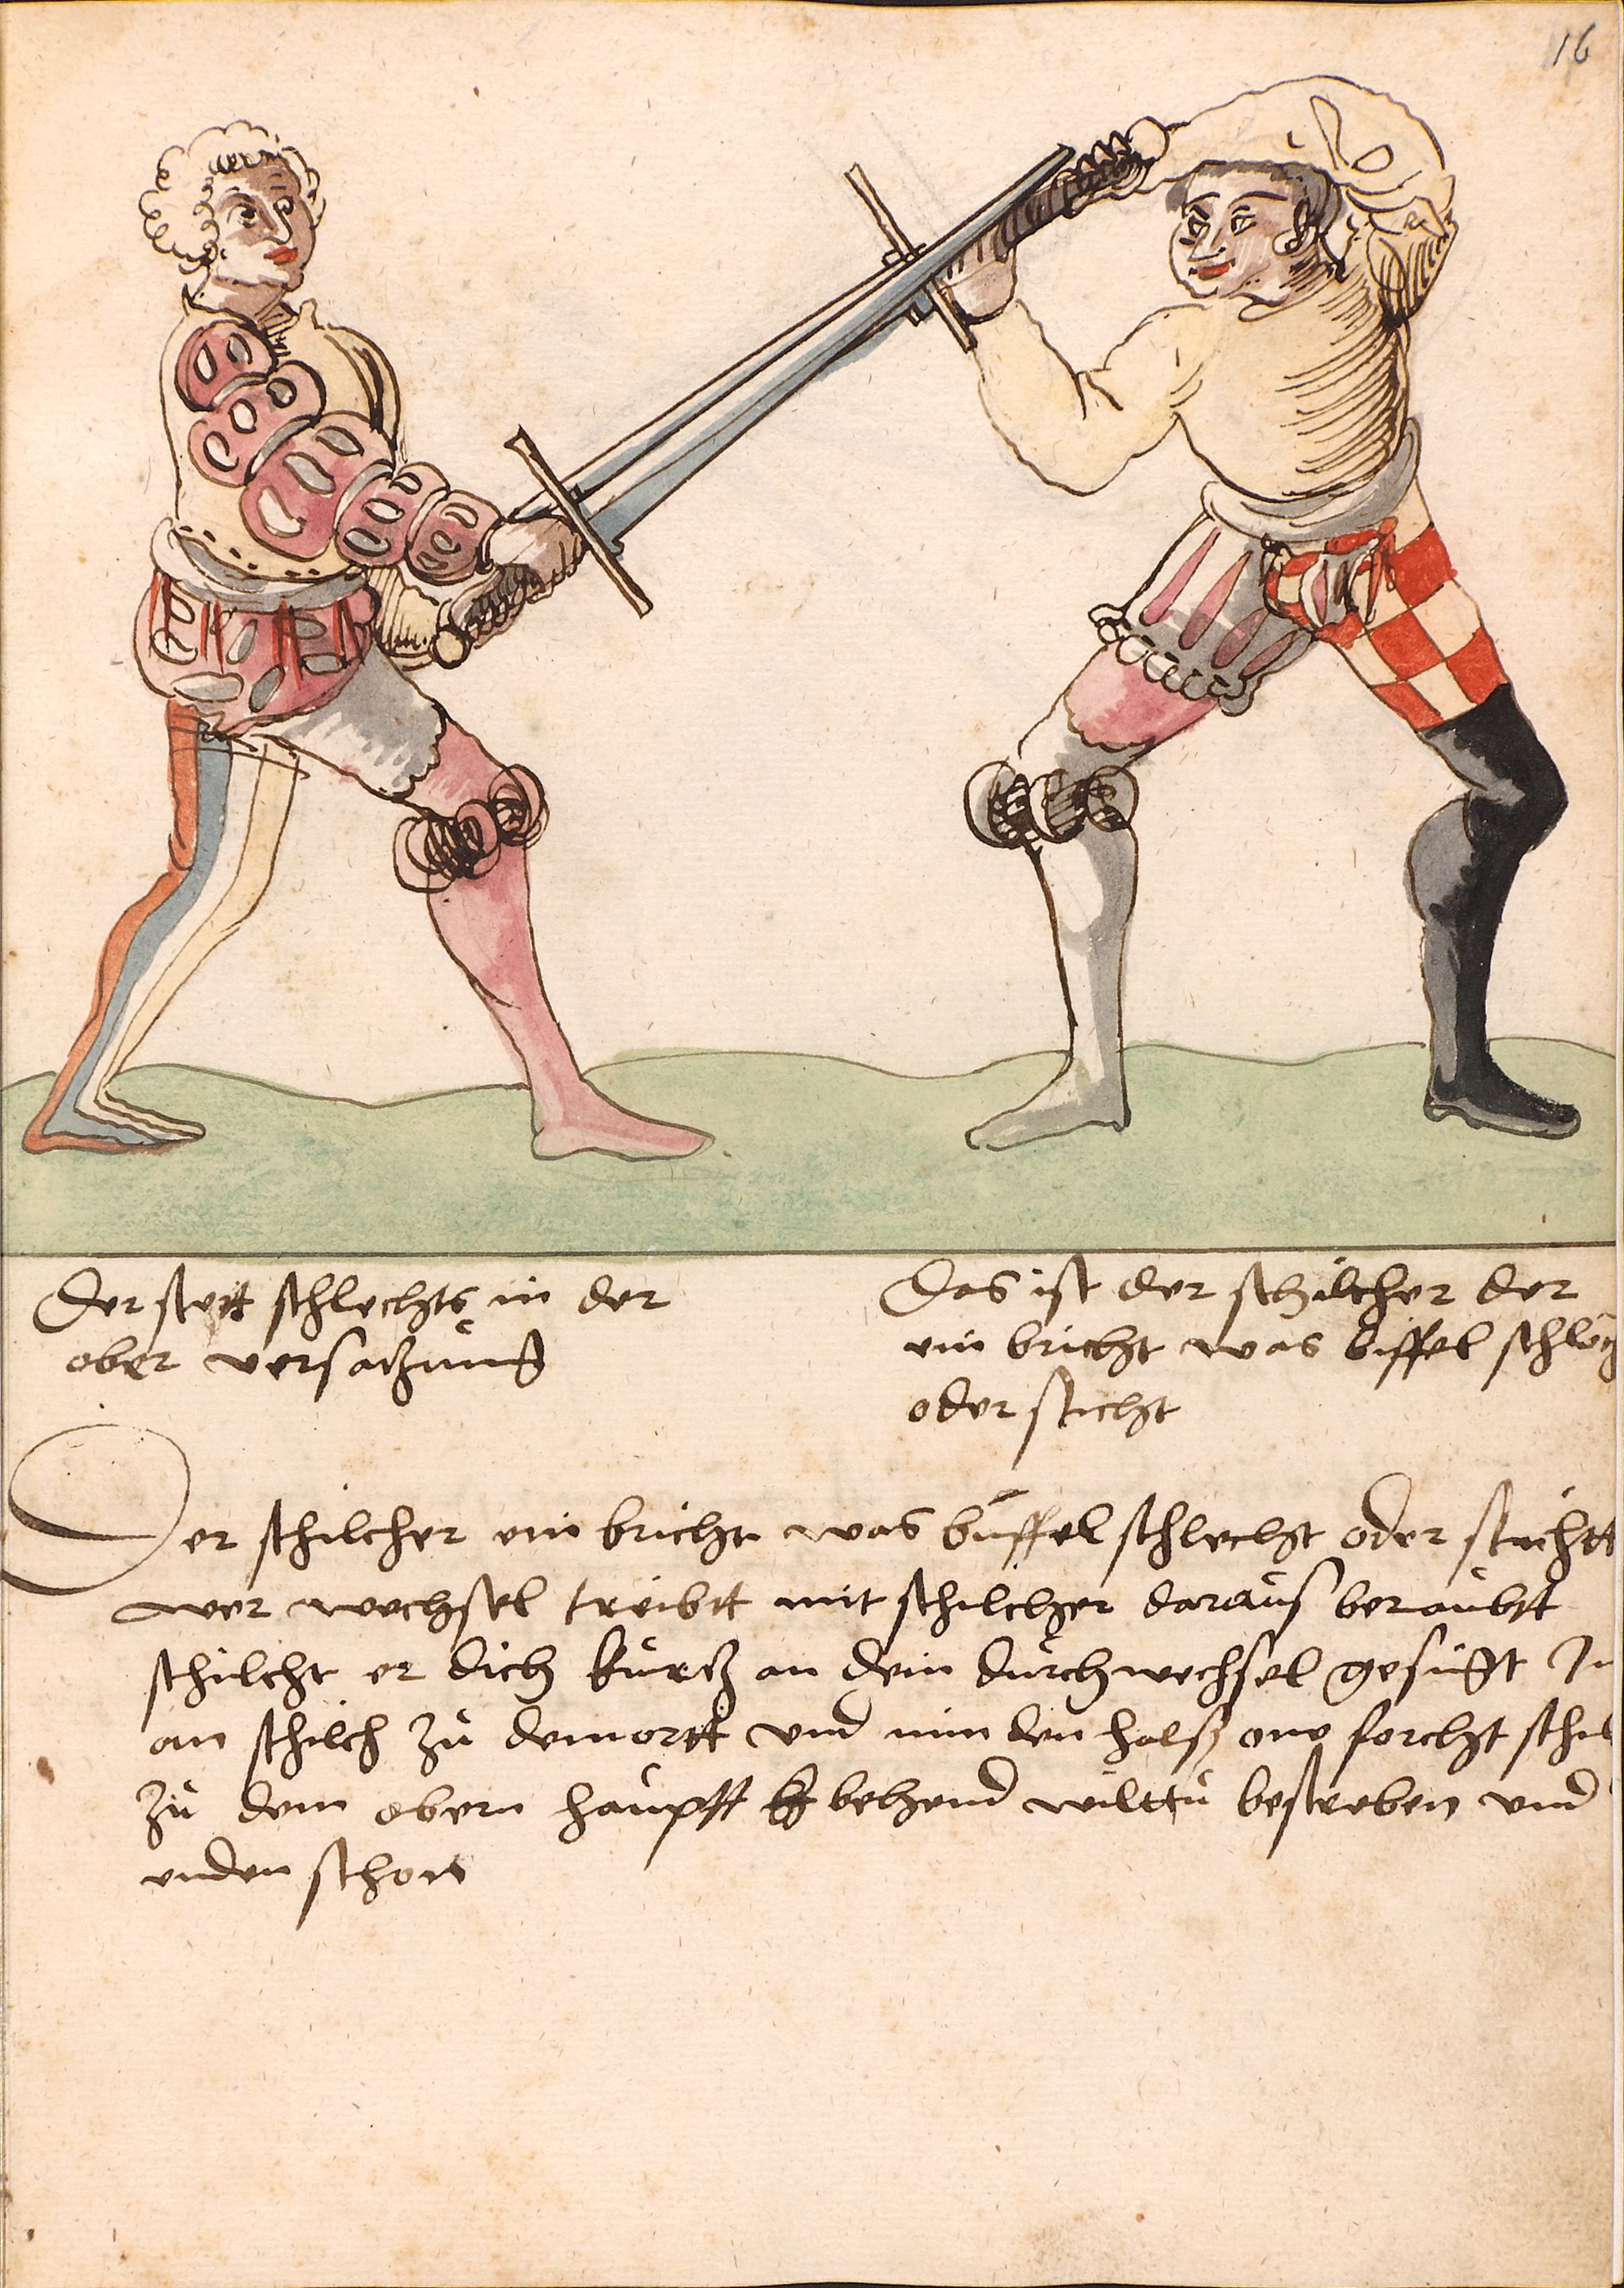 16
Der stett schlechts in der
ober versatzung
Das ist der schilcher der
ein bricht was biffel schlög
oder sticht
Der schilcher ein bricht was büffel schlecht oder stichtt
wer wechsel treibtt mit schilcher daraus beraubtt
schilcht er dich kurtz an dein durchwechsel gesigt In
an schilch zu dem ortt vnd nim den halss one forcht schil
zu dem obern hauptt behend wilttu bestreben vnd
enden schon